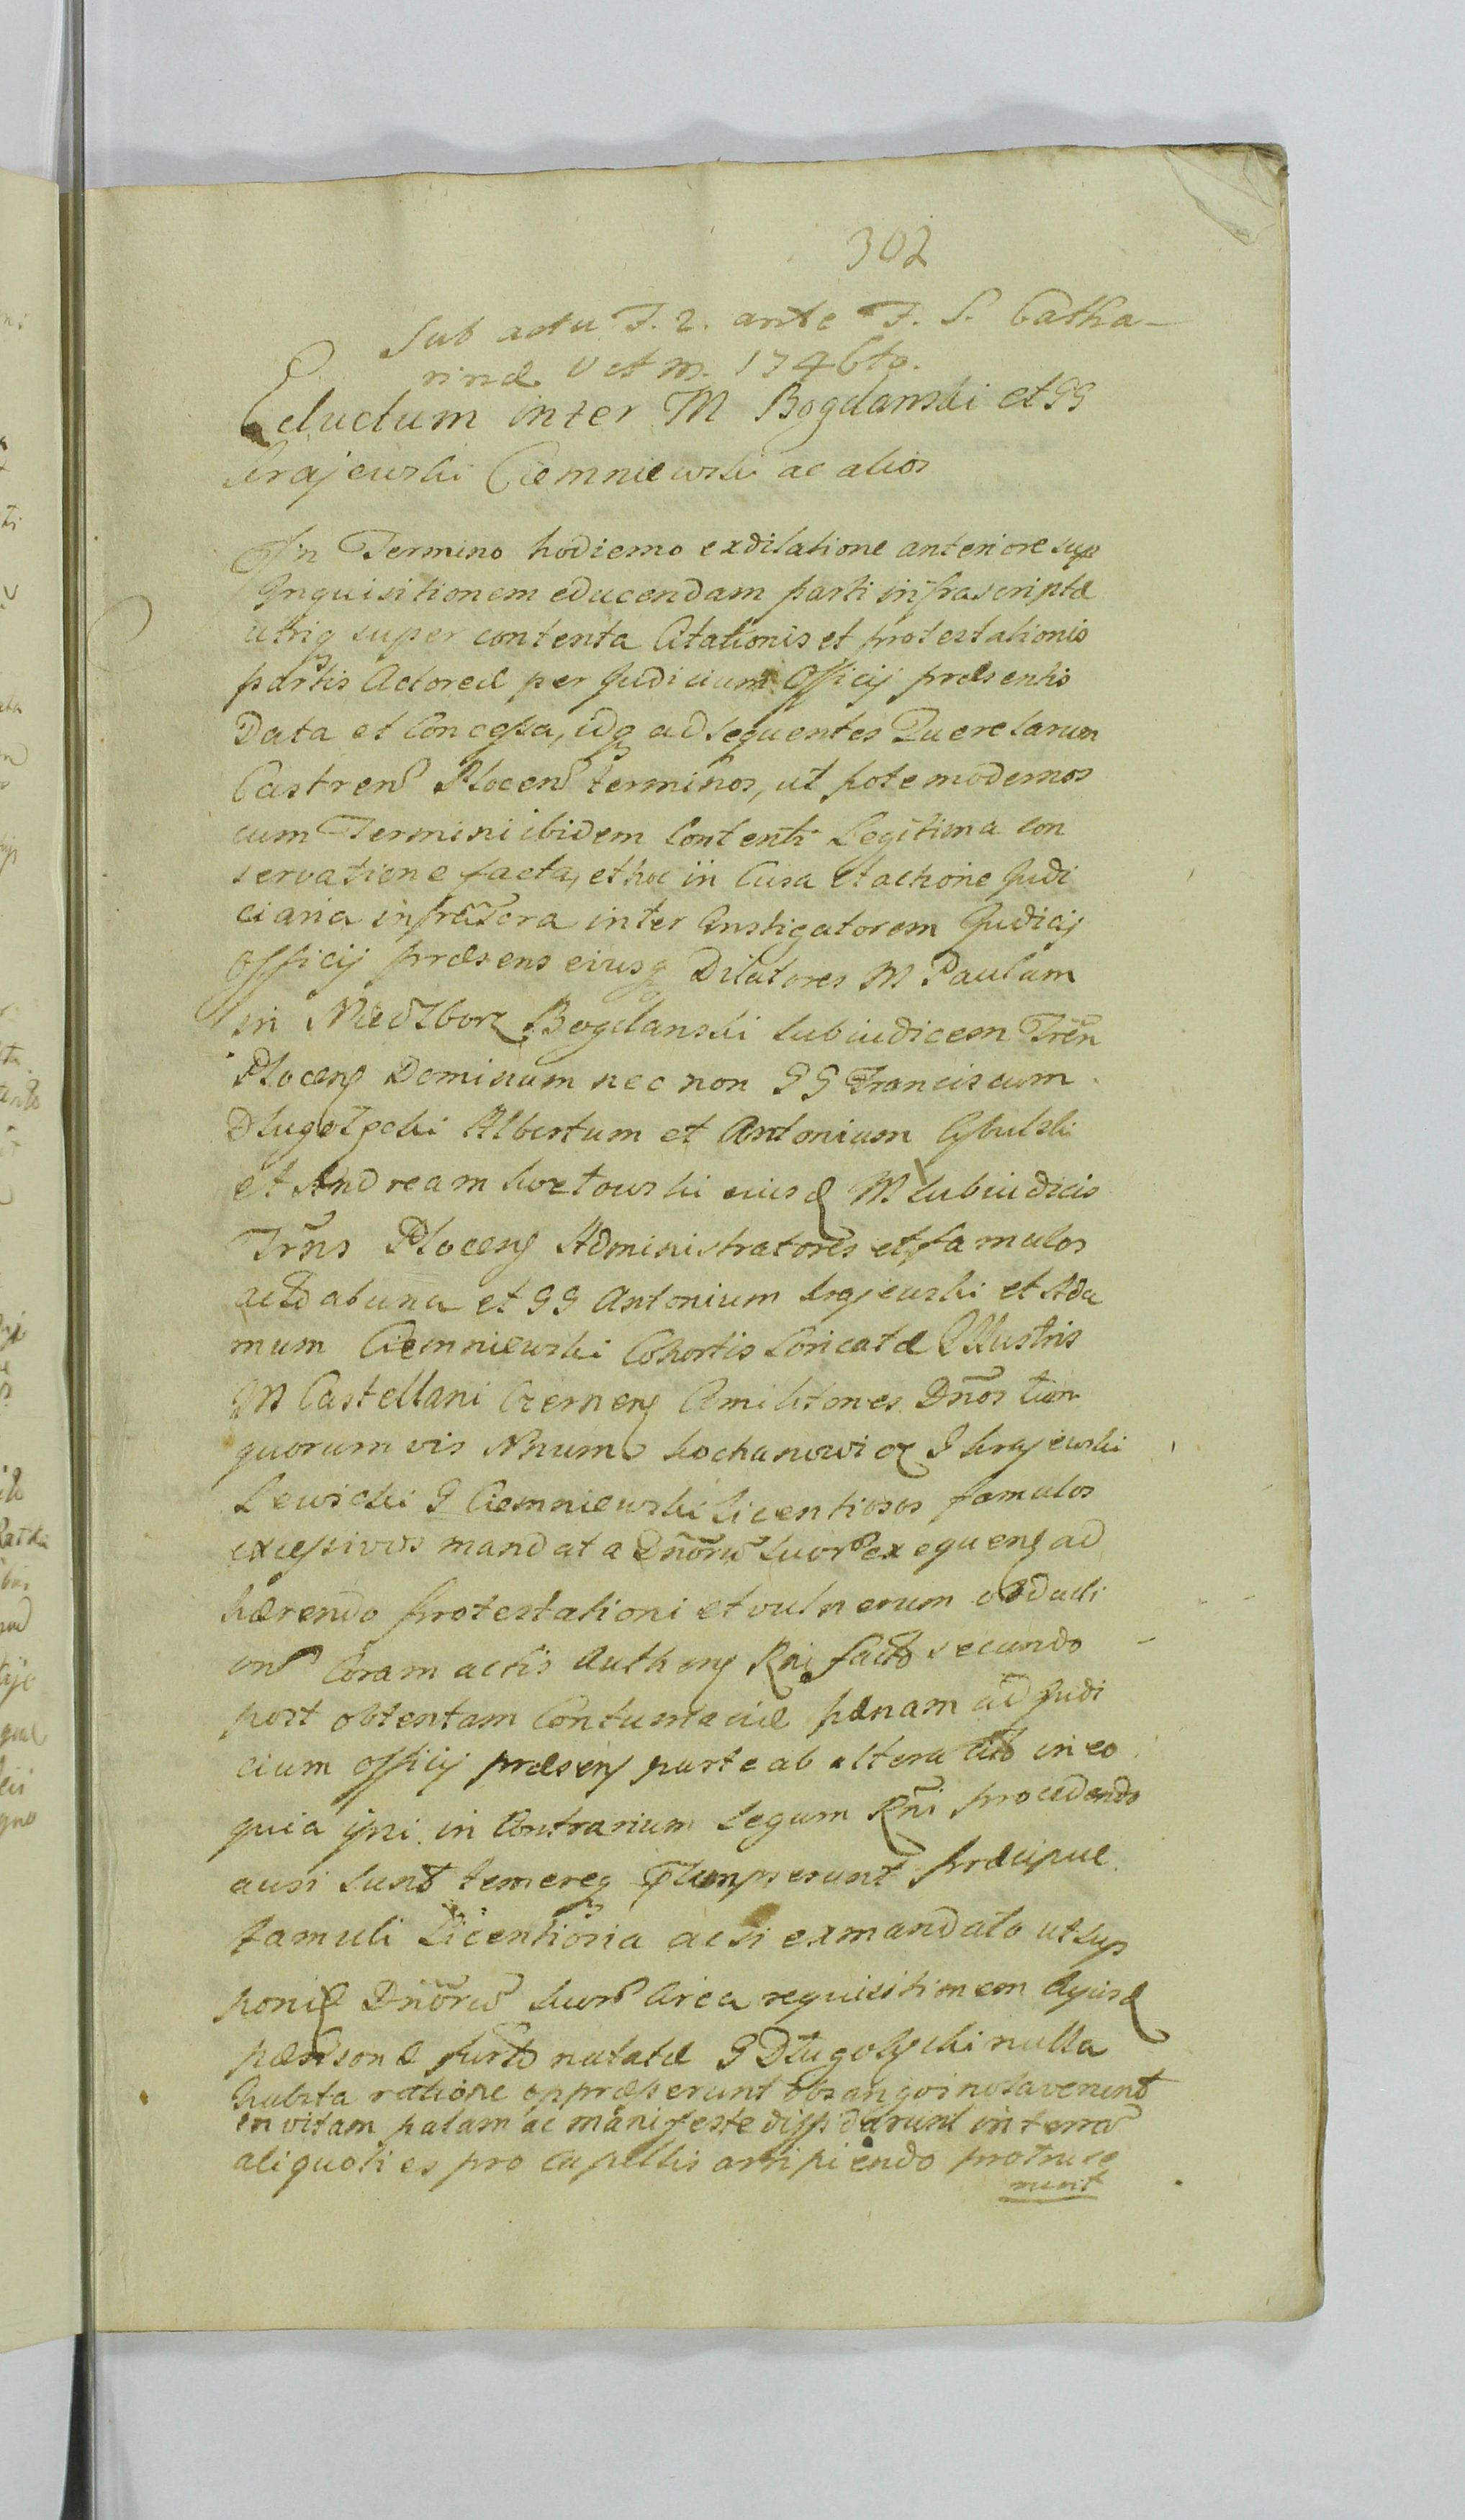 302
Sub actu F. 2. ante F. S. Catha-
rinæ V et M. 1746to.
Eductum inter M Bogdanski et GG
Krajewski Ciemniewski ac alios
In Termino hodierno ex dilatione anteriore sup
Inquisitionem educendam parti infrascriptæ
utriq super contenta Citationis et protestationis
partis Actoreæ per Judicium Officij præsentis
Data et Concessa, idq ad sequentes Querelarum
Castren Plocen terminos, ut pote modernos
cum Termini ibidem Contenti Legitima con
servatione facta, et hoc in Causa et actione Judi
ciaria infra inter Instigatorem Judicij
Officij præsens eiusq Dilatores M Paulum
in Bogdanski Subiudicem Tren
Plocens Dominum nec non GG Franciscum
Dlugolecki Albertum et Antonium Cybulski
et Andream eiusd M Subiudicis
Trns Plocens Administratores et famulos
act ab una et GG Antonium Krajewski et Ada
mum Ciemniewski Cohortis Loricatæ Illustris
M Castellani Czernens Comilitones Dnos tum
quorumvis Nnum Kochanowicz G Krajewski
Lewicki G Ciemniewski licentiosos famulos
excessivos mandata Dnoru suor exequens ad
hærendo protestationi et vulnerum obducti
on Coram actis Authens Rni fact secundo
post obtentam Contumaciæ pænam ad Judi
cium officij præsens parte ab altera cit in eo
quia ipsi in Contrarium Legum Rni procedendo
ausi sunt temereq præcipue
famuli Licentiosi ac si ex mandato ut sup
Dnoru suor circa requisitionem
personæ furto G Dlugolecki nulla
habita ratione oppræsserunt
invitam palam ac manifeste in terra
aliquoties pro capillis arripiendo protruse
runt